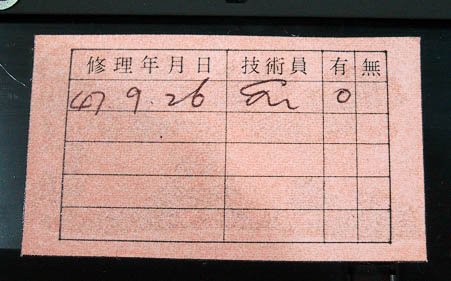 修理年月日 技術員 有 無
47.9.26 0